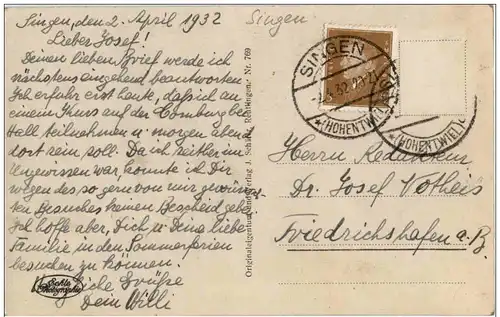 Singen, den 2. April 1932
Lieber Josef!
Deinen lieben Brief werde ich
nächstens eingehend beantworten
Ich erfahre erst heute, daß ich an
einem Kurs auf der Comburg bei
Hall teilnehmen u. morgen abend
dort sein soll. Da ich seither im
Ungewissen war, konnte ich Dir
wegen des so gern von mir
Besuches keinen Bescheid geben.
Ich hoffe aber, Dich u. Deine liebe
Familie in den Sommerferien
besuchen zu können.
Herzliche Grüße
Dein Willi
Echte Photographie
Originaleigentum und Verlag J. Schäfer, Nr. 769
Singen
SINGEN
.4.32.
(HOHENTWIEL)
(HOHENTWIEL)
Herrn Redakteur
Dr. Josef
Friedrichshafen a. B.